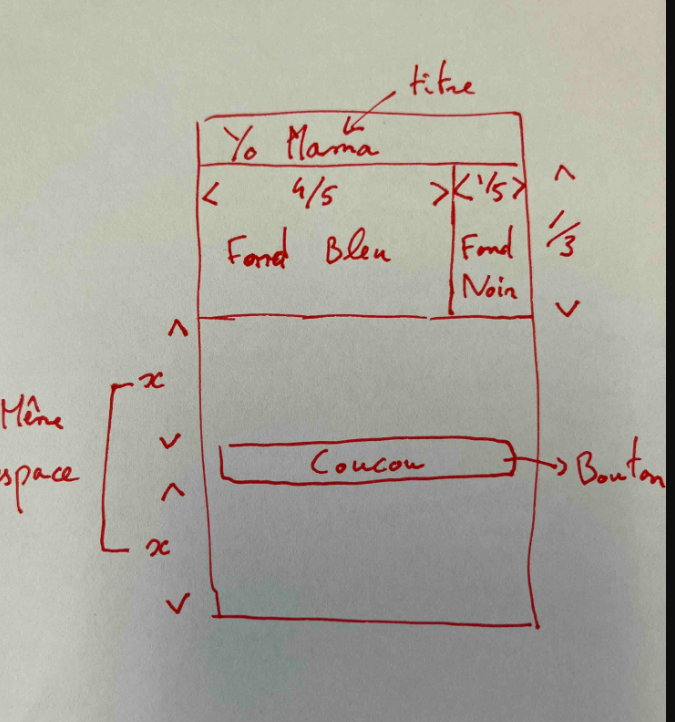 titre
Yo Mama
< 4/5 > < 1/5 >
Fond Bleu
Fond
Noir
1/3
x
Même
espace
Coucou
Bouton
x